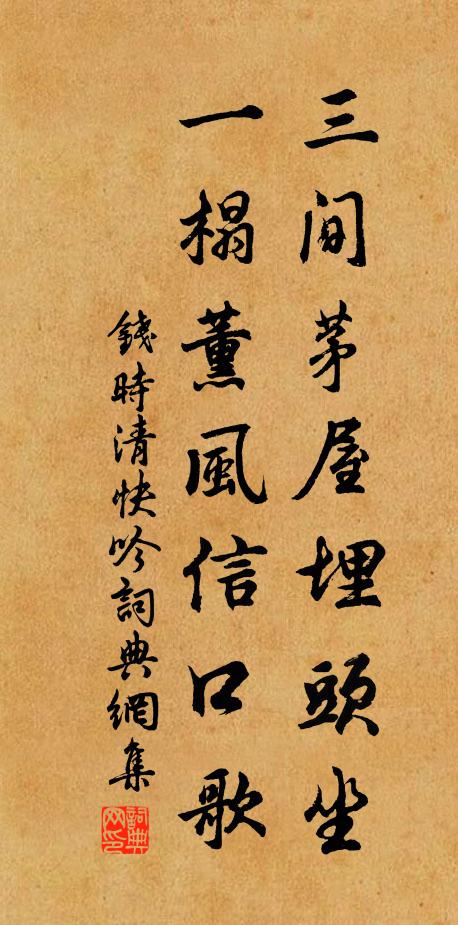 三間茅屋埋頭坐
一榻薰風信口歌
錢時清快吟詞典網集
詞典網印